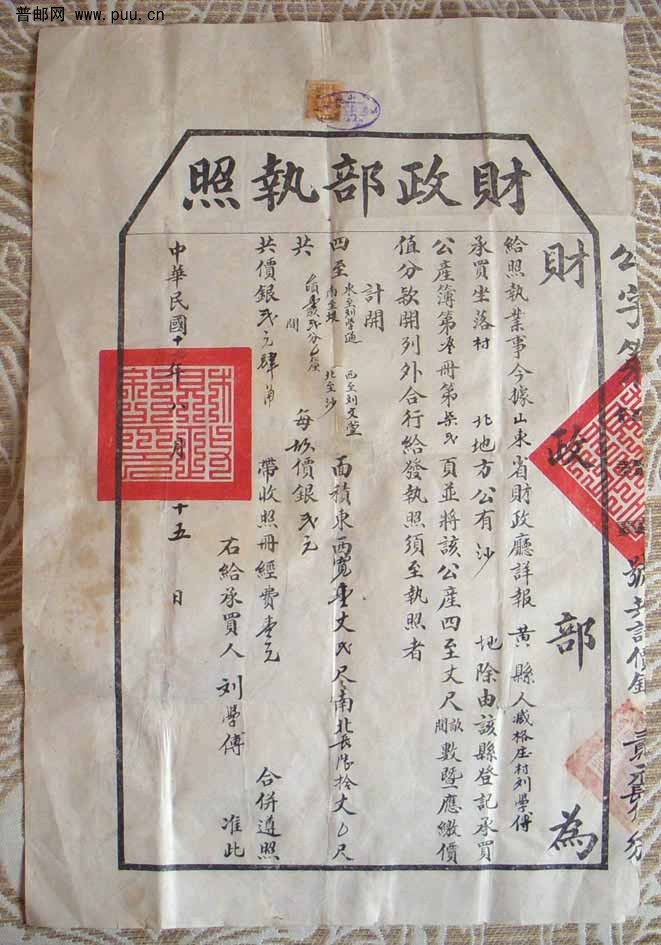 普邮网 www.puu.cn
財政部執照
財政部為
給照執業事今據山東省財政廳詳報黃縣人臧格庄村刘學傅
承買坐落村 北地方公有沙 地除由該縣登記承買
公產簿第 冊第柒弍頁並將該公產四至丈尺畝間數暨應繳價
值分款開列外合行給發執照須至執照者
計開
四至 東至刘學通 西至刘文堂 南至垻 北至沙 面積東西寬 丈弍尺南北長 拾丈 尺
共 弍分 間 每畝價銀弍元
共價銀弍元肆角 帶收照冊經費壹元 合併遵照
右給承買人刘學傅 准此
中華民國十 年八月 十五日
公字第 號 計價銀